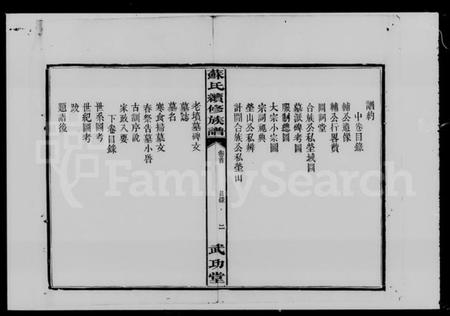 譜約
中卷目錄
輔公遺像
輔公行畧贊
圓祠堂
合族公私塋域圖
墓派碑考圖
服制總圖
大宗小宗圖
宗祠規典
塋山公私辨
計開合族公私塋山
蘇氏續修族譜
卷首
目錄
二
武功堂
老墳墓碑文
墓誌
墓名
寒食歸墓文
春祭告墓小啓
古訓序説
家政入要
下卷目錄
世系圖考
世紀圖考
跋
題譜後
FamilySearch